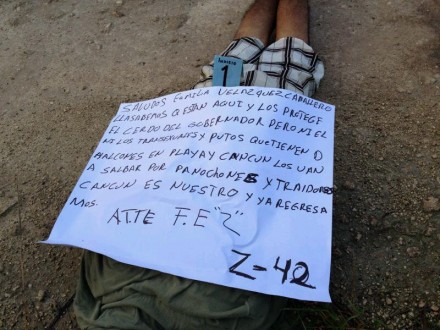 1
SALUDOS FAMILIA VELAZQUEZ CABALLERO
LLASABEMOS Q ESTAN AQUI Y LOS PROTEGE
EL CERDO DEL GOBERNADOR PERO NI EL
NI LOS TRANSEXUALES Y PUTOS QUETIENEN D
HALCONES EN PLAYA Y CANCUN LOS VAN
A SALBAR POR PANOCHONES Y TRAIDORES
CANCUN ES NUESTRO Y YA REGRESA
MOS.
ATTE F.E "Z"
Z-40